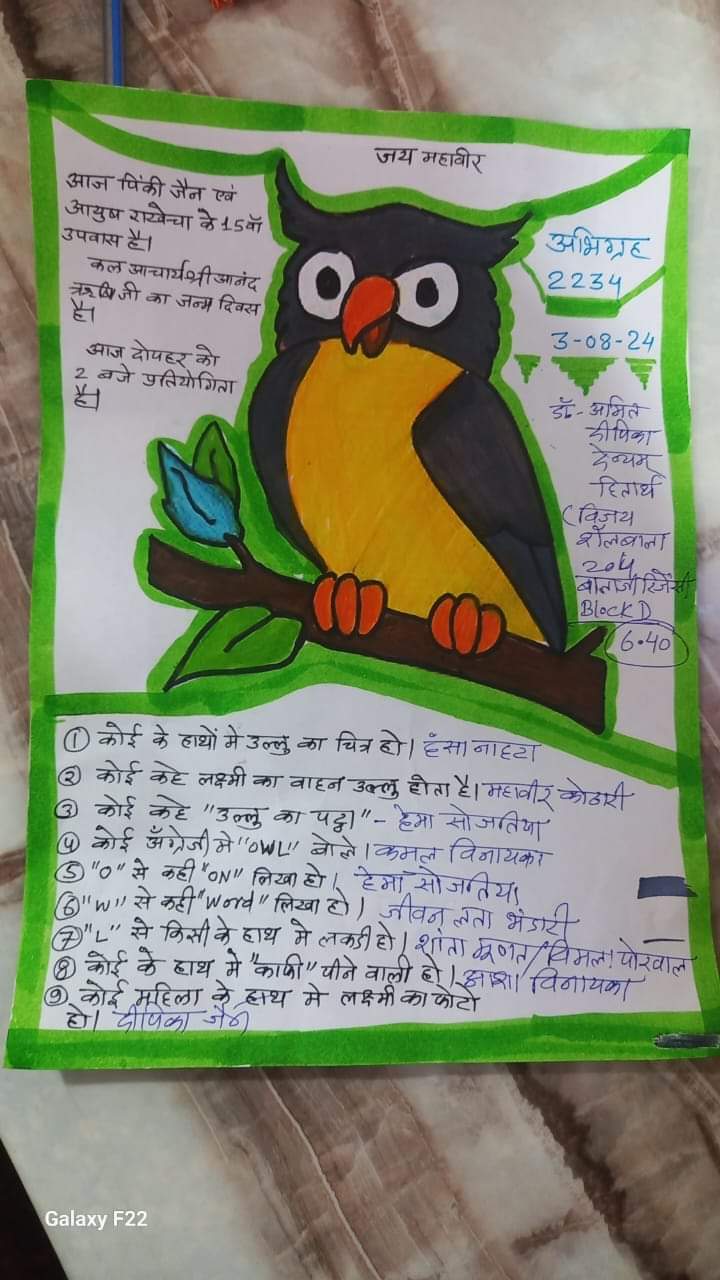 जय महावीर
आज पिंकी जैन एवं
आयुष राखेचा के 15वॉ
उपवास है।
कल आचार्य श्री आनंद
ऋषि जी का जन्म दिवस
है।
आज दोपहर को
2 बजे प्रतियोगिता
है।
अभिग्रह
2234
3-08-24
डॉ.- अमित
दीपिका
हितार्थ
(विजय
204
Block D
6.40
① कोई के हाथों मे उल्लु का चित्र हो। हंसा नाहटा
② कोई कहे लक्ष्मी का वाहन उल्लु होता है। महावीर कोठारी
③ कोई कहे "उल्लु का पट्ठा" - हेमा सोजतिया
④ कोई अँग्रेजी मे "OWL" बोले। कमल विनायका
⑤ "O" से कही "ON" लिखा हो। हेमा सोजतिया
⑥ "W" से कही "Word" लिखा हो। जीवन लता भंडारी
⑦ "L" से किसी के हाथ मे लकडी हो। शांता मूणत/विमला पोरवाल
⑧ कोई के हाथ मे "काफी" पीने वाली हो। आशा विनायका
⑨ कोई महिला के हाथ मे लक्ष्मी का फोटो
हो। दीपिका जैन
Galaxy F22